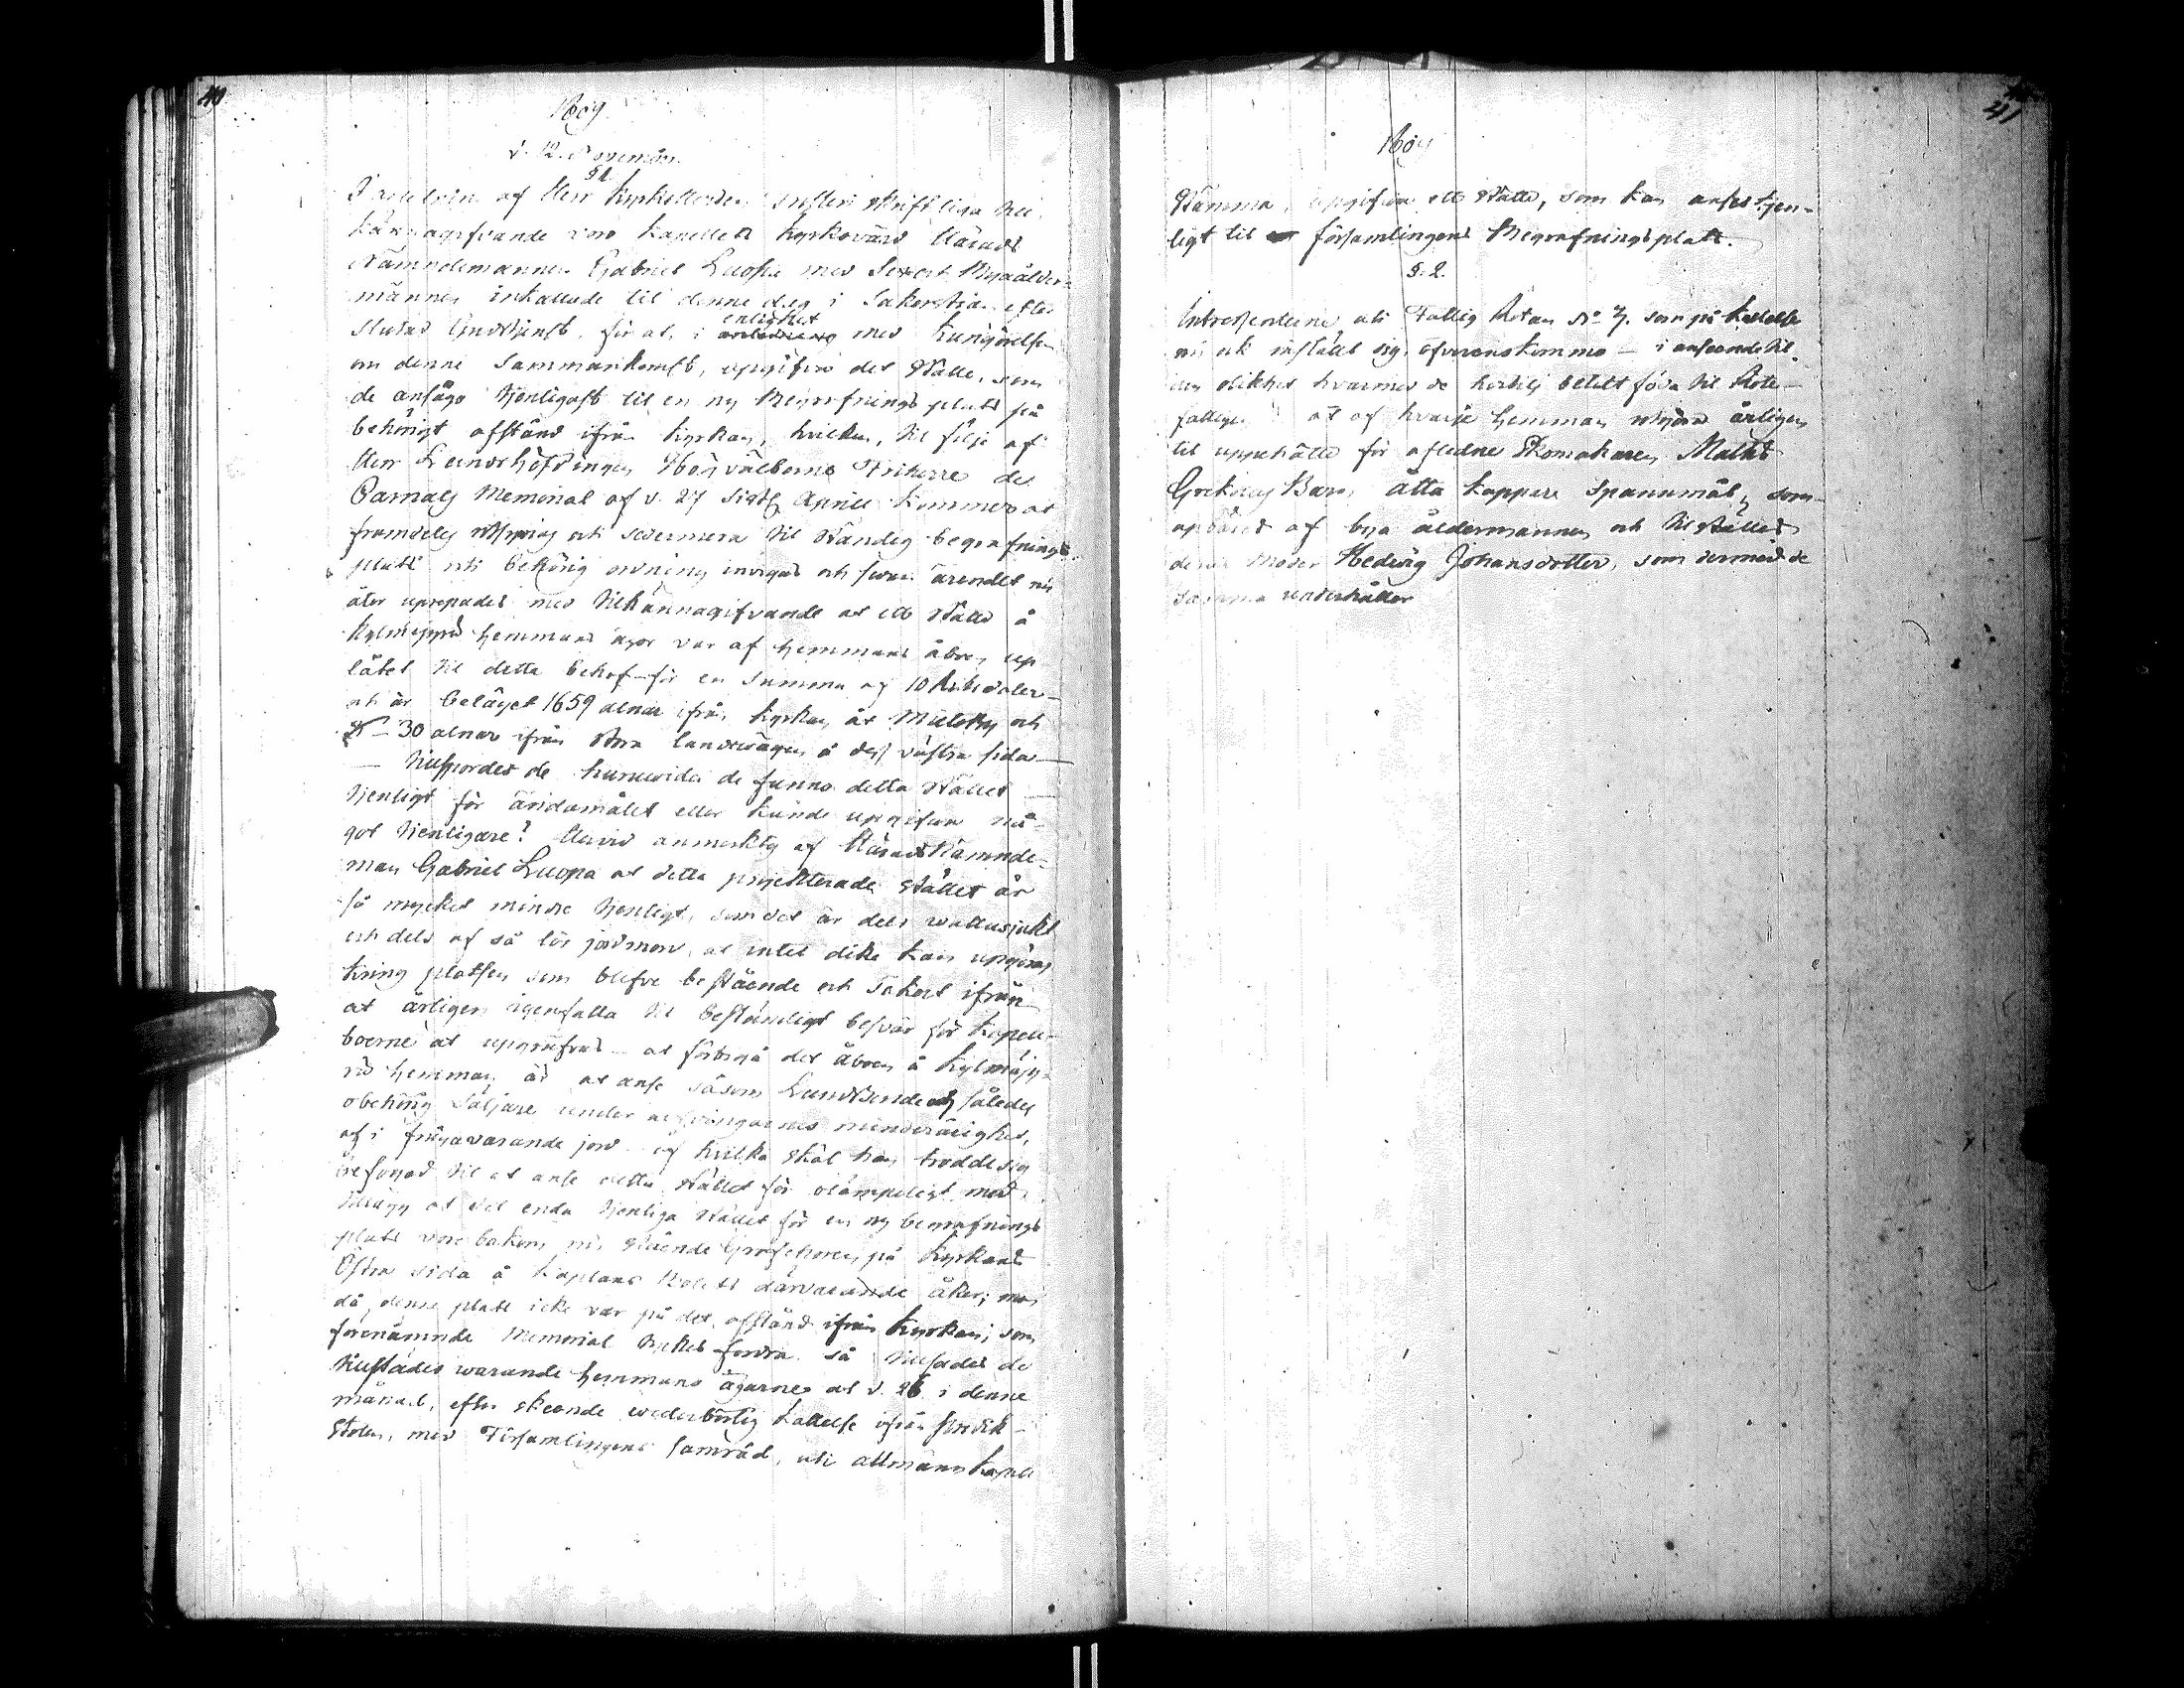 40
1809
d. 12. Novembr.
§1.
af Herr Kyrkoherden skriftliga till
kännagifvande voro Kapellets Kyrkovärd Härads
Nämndemannen Gabriel Luopa med Byaålder-
männen inkallade til denne dag i Sakerstian efter
slutad Gudstjenst, för at, i enlighet med Kungörelsen
om denne Sammankomst, upgifva det ställe, som
de ansågo tjenligast til en ny Begrafnings plats på
behörigt afstånd ifrån Kyrkan, hvilken, til följe af
Herr Landshöfdingen Högvälborne Friherre de
Carnalls Memorial af d. 27 Sistl. April kommer at
framdeles och sedermera til ständig begrafnings
plats uti behörig ordning invigas och ärendet nu
åter upropades med tilkännagifvande at ett ställe å
hemmans ägor var af hemmans åboen up
låtet til detta behof för en summa af 10 Riksdaler
och är beläget 1659 alnar ifrån Kyrkan åt och
30 alnar ifrån stora landsvägen å dess västra sida
— Tilspordes de huruvida de funno detta stället
tjenligt för ändamålet eller kunde upgifva nå-
got tjenligare? Härvid anmerktes af Härads Nämnde-
man Gabriel Luopa at detta projekterade stället är
så mycket mindre tjenligt, som det är dels wattusjukt
och dels af så lös jordmon, at intet dike kan upgöras
kring platsen som blefve bestående och Säkert ifrån
at årligen igenfalla til beständigt besvär för Kapell-
boerne at upgräfvas — at förbigå det åboen å
hemman är at anse såsom således
obehörig säljare under arfvingarnes minderårighet,
af i frågavarande jord — af hvilka skäl han trodde sig
befogad til at anse detta stället för olämpeligt med
tillägg at det enda tjenliga stället för en ny begrafnings
plats vore bakom nu stående på Kyrkans
Östra sida å Kaplans Bolets därvarande åker; men
då denne plats icke var på det afstånd ifrån Kyrkan, som
förenämnde Memorial fordra så de
tilstädes warande hemmans ägarnes at d. 26 i denne
månad, efter skeende wederbörlig kallelse ifrån Predik-
stolen, med Församlingens samråd, uti allmänn Kapell
41
1809
Stämma, upgifva ett ställe, som kan anses tjen-
ligt til församlingens Begrafningsplats.
§. 2.
Intressenterne uti Fattig Rotan No 7. som på kallelse
nu ock instält sig, öfverenskommo — i anseende til
den olikhet hvarmed de hertils betalt föda til Rote-
fattigen at af hvarje hemman årligen
til uppehälle för aflidne Skomakaren Matts
Barn, åtta kappar Spannmål, som
upbäres af bya åldermannen och tilställes
deras Moder Hedvig Johansdotter, som dermed de
samma underhåller